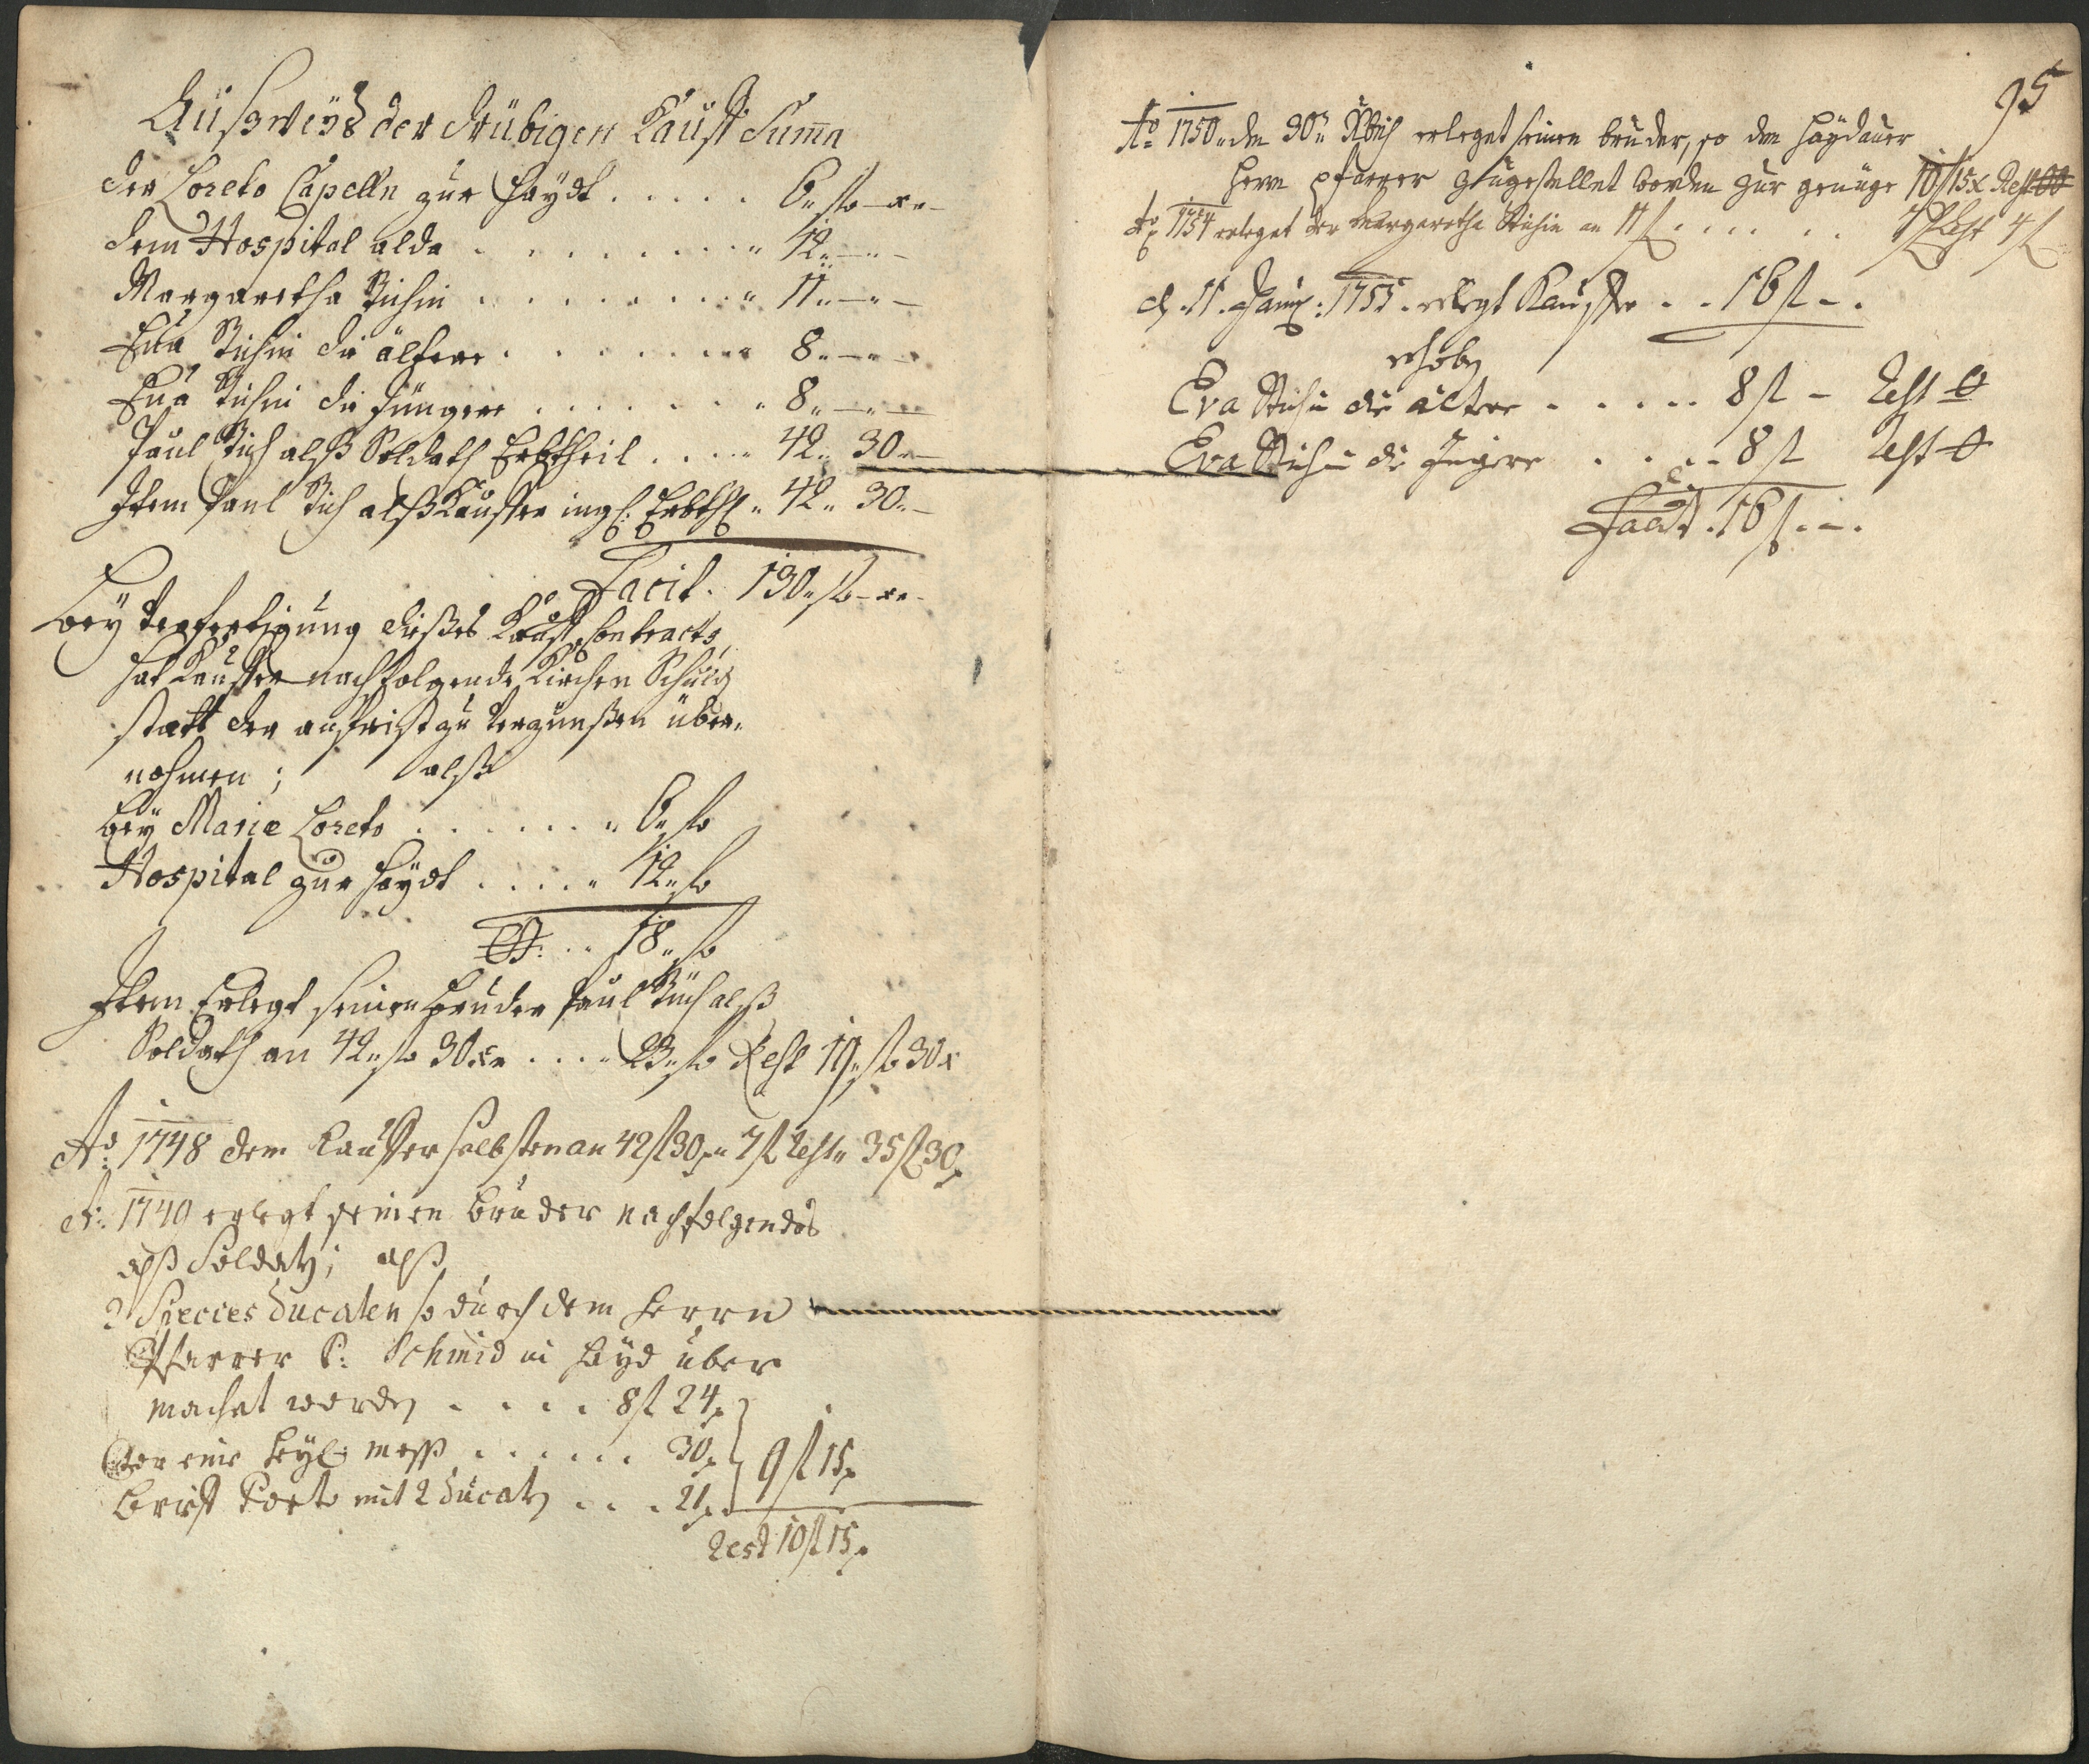 Außweyß der drübigen Kauff Summa
der Loreto Capelln zur Haydt . . . . . 6 „ fl — xr —
dem Hospital alda . . . . . . . . „ 12 „ — „ —
Margaretha Richin . . . . . . . . „ 11 „ — „ —
Eva Richin die ältere . . . . . . . „ 8 „ — „ —
Eva Richin die Jüngere . . . . . . . „ 8 „ — „ —
Paul Rich alß Soldath Erbtheil . . . . „ 42 „ 30 „ —
Item Paul Rich alß Kauffer ingl: Erbthl „ 42 „ 30 „ —
Facit . 130 „ fl — xr —
Bey Verfertigung dießes Kauff Contracts,
hat Kauffer nachfolgende Kirchen Schuld
statt der anfrist zu Verzünßen über-
nohmen ; alß
bey Mariæ Loreto . . . . . . . „ 6 „ fl
Hospital zur Haydt . . . . . „ 12 „ fl
18 „ fl
Item Erlegt seinen Bruder Paul Rich alß
Soldath an 42 „ fl 30 xr . . . . „ 23 „ fl Rest 19 „ fl 30 x
Ao 1748 dem Kauffer selbsten an 42 fl 30 x „ 7 fl Rest „ 35 fl 30 x
Ao 1749 erlegt seinen Bruder nachfolgendes
alß Soldath; alß
2 Species Ducaten so durch dem Herrn
Pfarrer P: Schmid in Hayd über
machet worden . . . . 8 fl 24 x
vor eine Heyl: Mess . . . . . . 30 x 9 fl 15 x
Brieff Porto mit 2 Ducaten . . . 21 x
Rest 10 fl 15 x
95
Ao 1750 „ den 30 „ Xbris erleget seinen bruder, so dem Haydauer
Herrn Pfarrer zugestellet worden zur genüge 10 fl 15 x Rest
Ao 1754 erleget der Margaretha Richin an 11 fl . . . . . . 7 fl Rest 4 fl
d. 11. January: 1755. erlegt Kauffer . . 16 fl – .
erhoben
Eva Richin die ältere . . . . . 8 fl – Rest 0
Eva Richin die Jngere . . . . 8 fl Rest 0
Facit . 16 fl . – .